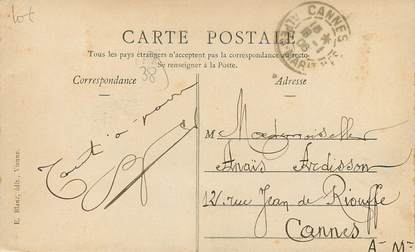 lot
CARTE POSTALE
Tous les pays étrangers n'acceptent pas la correspondance au recto.
Se renseigner à la Poste.
Correspondance
Adresse
CANNES
Tout à vous
M Mademoiselle
Anaïs Ardisson
12 rue Jean de Riouffe
Cannes
A-M
E. Blanc, édit., Vienne.